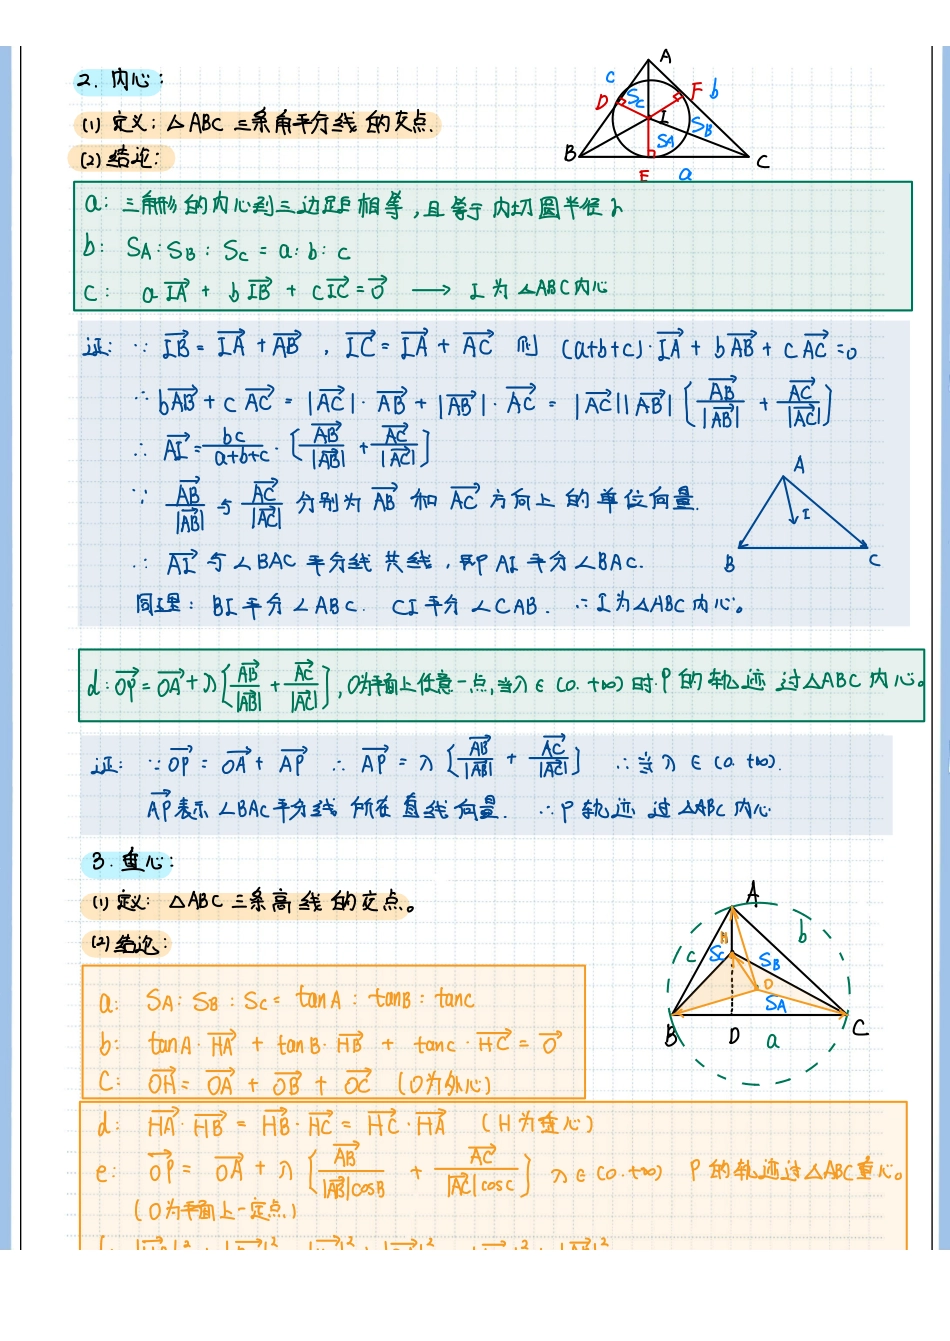 2. 内心：
(1) 定义：△ABC 三条角平分线的交点.
(2) 结论：
A
B
C
D
E
F
I
a
b
c
S_A
S_B
S_C
a: 三角形的内心到三边距相等，且等于内切圆半径r
b: S_A : S_B : S_C = a : b : c
c: a\overrightarrow{IA} + b\overrightarrow{IB} + c\overrightarrow{IC} = \overrightarrow{0} ⟶ I 为△ABC内心
证: ∵ \overrightarrow{IB} = \overrightarrow{IA} + \overrightarrow{AB} , \overrightarrow{IC} = \overrightarrow{IA} + \overrightarrow{AC} 则 (a+b+c)·\overrightarrow{IA} + b\overrightarrow{AB} + c\overrightarrow{AC} = 0
∴ b\overrightarrow{AB} + c\overrightarrow{AC} = |\overrightarrow{AC}|·\overrightarrow{AB} + |\overrightarrow{AB}|·\overrightarrow{AC} = |\overrightarrow{AC}||\overrightarrow{AB}| [\frac{\overrightarrow{AB}}{|\overrightarrow{AB}|} + \frac{\overrightarrow{AC}}{|\overrightarrow{AC}|}]
∴ \overrightarrow{AI} = \frac{bc}{a+b+c}·[\frac{\overrightarrow{AB}}{|\overrightarrow{AB}|} + \frac{\overrightarrow{AC}}{|\overrightarrow{AC}|}]
∵ \frac{\overrightarrow{AB}}{|\overrightarrow{AB}|} 与 \frac{\overrightarrow{AC}}{|\overrightarrow{AC}|} 分别为 \overrightarrow{AB} 和 \overrightarrow{AC} 方向上的单位向量.
∴ \overrightarrow{AI} 与∠BAC 平分线共线，即AI平分∠BAC.
同理：BI平分∠ABC. CI平分∠CAB. ∴ I为△ABC内心。
A
I
B
C
d: \overrightarrow{OP} = \overrightarrow{OA} + λ[\frac{\overrightarrow{AB}}{|\overrightarrow{AB}|} + \frac{\overrightarrow{AC}}{|\overrightarrow{AC}|}], O为平面上任意一点,当λ∈(0.+∞)时.P的轨迹过△ABC内心。
证: ∵ \overrightarrow{OP} = \overrightarrow{OA} + \overrightarrow{AP} ∴ \overrightarrow{AP} = λ[\frac{\overrightarrow{AB}}{|\overrightarrow{AB}|} + \frac{\overrightarrow{AC}}{|\overrightarrow{AC}|}] ∴ 当λ∈(0.+∞).
\overrightarrow{AP}表示∠BAC平分线所在直线向量. ∴ P轨迹过△ABC内心
3. 垂心：
(1) 定义：△ABC 三条高线的交点。
(2) 结论：
A
B
C
D
H
O
a
b
c
S_A
S_B
S_C
a: S_A : S_B : S_C = tanA : tanB : tanC
b: tanA·\overrightarrow{HA} + tanB·\overrightarrow{HB} + tanC·\overrightarrow{HC} = \overrightarrow{0}
C: \overrightarrow{OH} = \overrightarrow{OA} + \overrightarrow{OB} + \overrightarrow{OC} (O为外心)
d: \overrightarrow{HA}·\overrightarrow{HB} = \overrightarrow{HB}·\overrightarrow{HC} = \overrightarrow{HC}·\overrightarrow{HA} (H为垂心)
e: \overrightarrow{OP} = \overrightarrow{OA} + λ[\frac{\overrightarrow{AB}}{|\overrightarrow{AB}|cosB} + \frac{\overrightarrow{AC}}{|\overrightarrow{AC}|cosC}] λ∈(0.+∞) P的轨迹过△ABC垂心。
(O为平面上一定点)